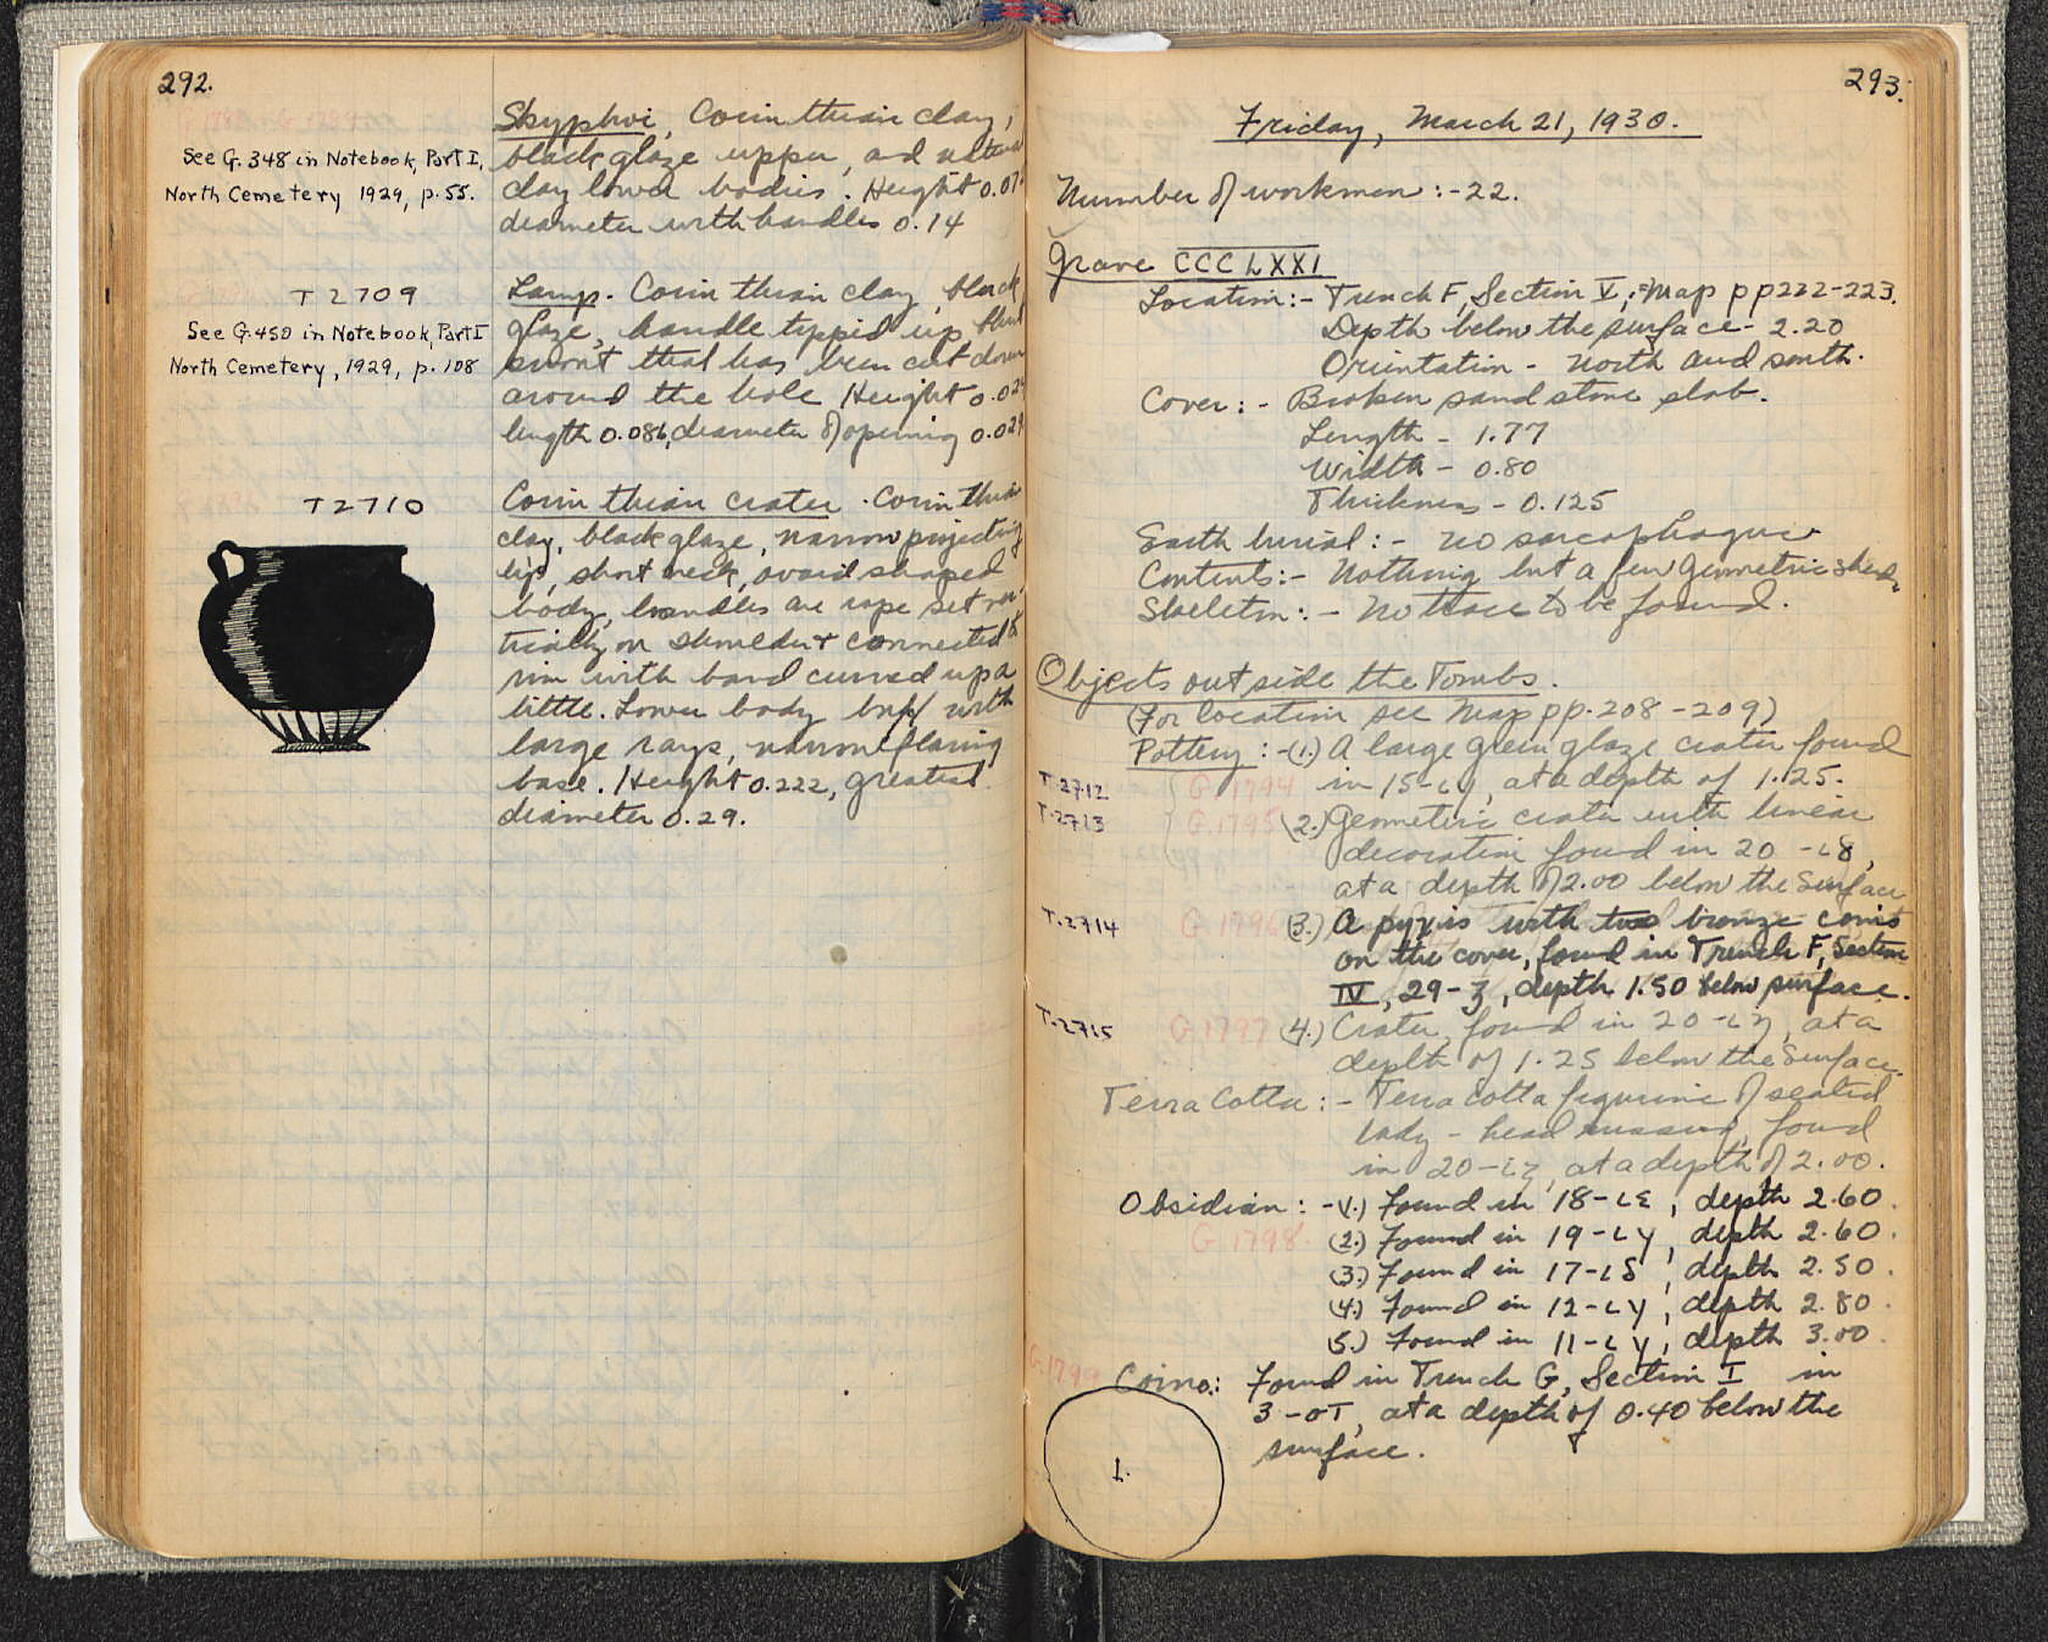 292.
Skyphoi, Corinthian clay,
black glaze upper, and natural
See G. 348 in Notebook, Part I,
clay lower bodies. Height 0.07
North Cemetery 1929, p. 55.
diameter with handles 0.14
T 2709
Lamp. Corinthian clay, black
glaze, handle tipped up, blunt
See G. 450 in Notebook, Part I
snout that has been cut down
North Cemetery, 1929, p. 108
around the hole Height 0.029
length 0.086, diameter of opening 0.029
T 2710
Corinthian crater. Corinthian
clay, black glaze, narrow projecting
lip, short neck, ovoid shaped
body, handles are rope set ver-
tically on shoulder + connected to
rim with band curved up a
little. Lower body buff with
large rays, narrow flaring
base. Height 0.222, greatest
diameter 0.29.
293.
Friday, March 21, 1930.
Number of workmen :- 22.
Grave CCCLXXI
Location:- Trench F, Section V, Map pp 222-223.
Depth below the surface - 2.20
Orientation - North and south.
Cover: - Broken sandstone slab.
Length - 1.77
Width - 0.80
Thickness - 0.125
Earth burial: - no sarcophagus
Contents:- Nothing but a few Geometric sherds
Skeleton: - No trace to be found.
Objects outside the Tombs.
(For location see Map pp. 208-209)
Pottery: -(1.) A large green glaze crater found
T.2712 G.1794 in 15-ιγ, at a depth of 1.25.
T.2713 G.1795 (2.) Geometric crater with linear
decoration found in 20-ι8,
at a depth of 2.00 below the surface
T.2714 G 1796 (3.) A pyxis with two bronze coins
on the cover, found in Trench F, Section
IV, 29-ʒ, depth 1.50 below surface.
T.2715 G 1797 (4.) Crater, found in 20-ιη, at a
depth of 1.25 below the surface.
Terra Cotta: - Terra cotta figurine of seated
lady - head missing, found
in 20-ιζ, at a depth of 2.00.
Obsidian: -(1.) Found in 18-ιε, depth 2.60.
G 1798. (2.) Found in 19-ιγ, depth 2.60.
(3.) Found in 17-ιδ, depth 2.50.
(4.) Found in 12-ιγ, depth 2.80.
(5.) Found in 11-ιγ, depth 3.00.
G.1799 Coins: Found in Trench G, Section I in
3-οτ, at a depth of 0.40 below the
surface.
1.